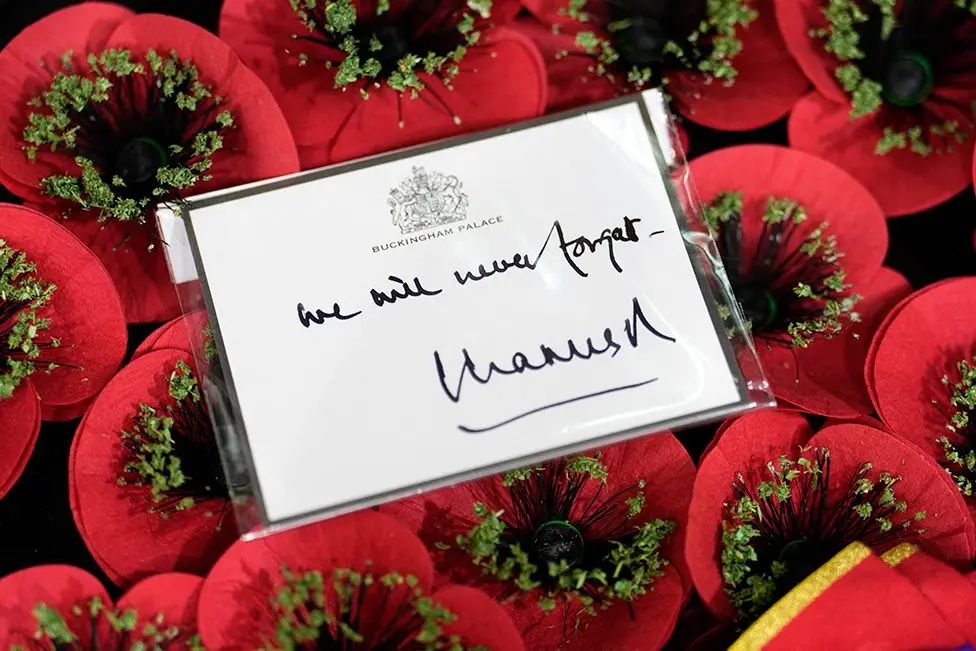 BUCKINGHAM PALACE
We will never forget -
Charles R